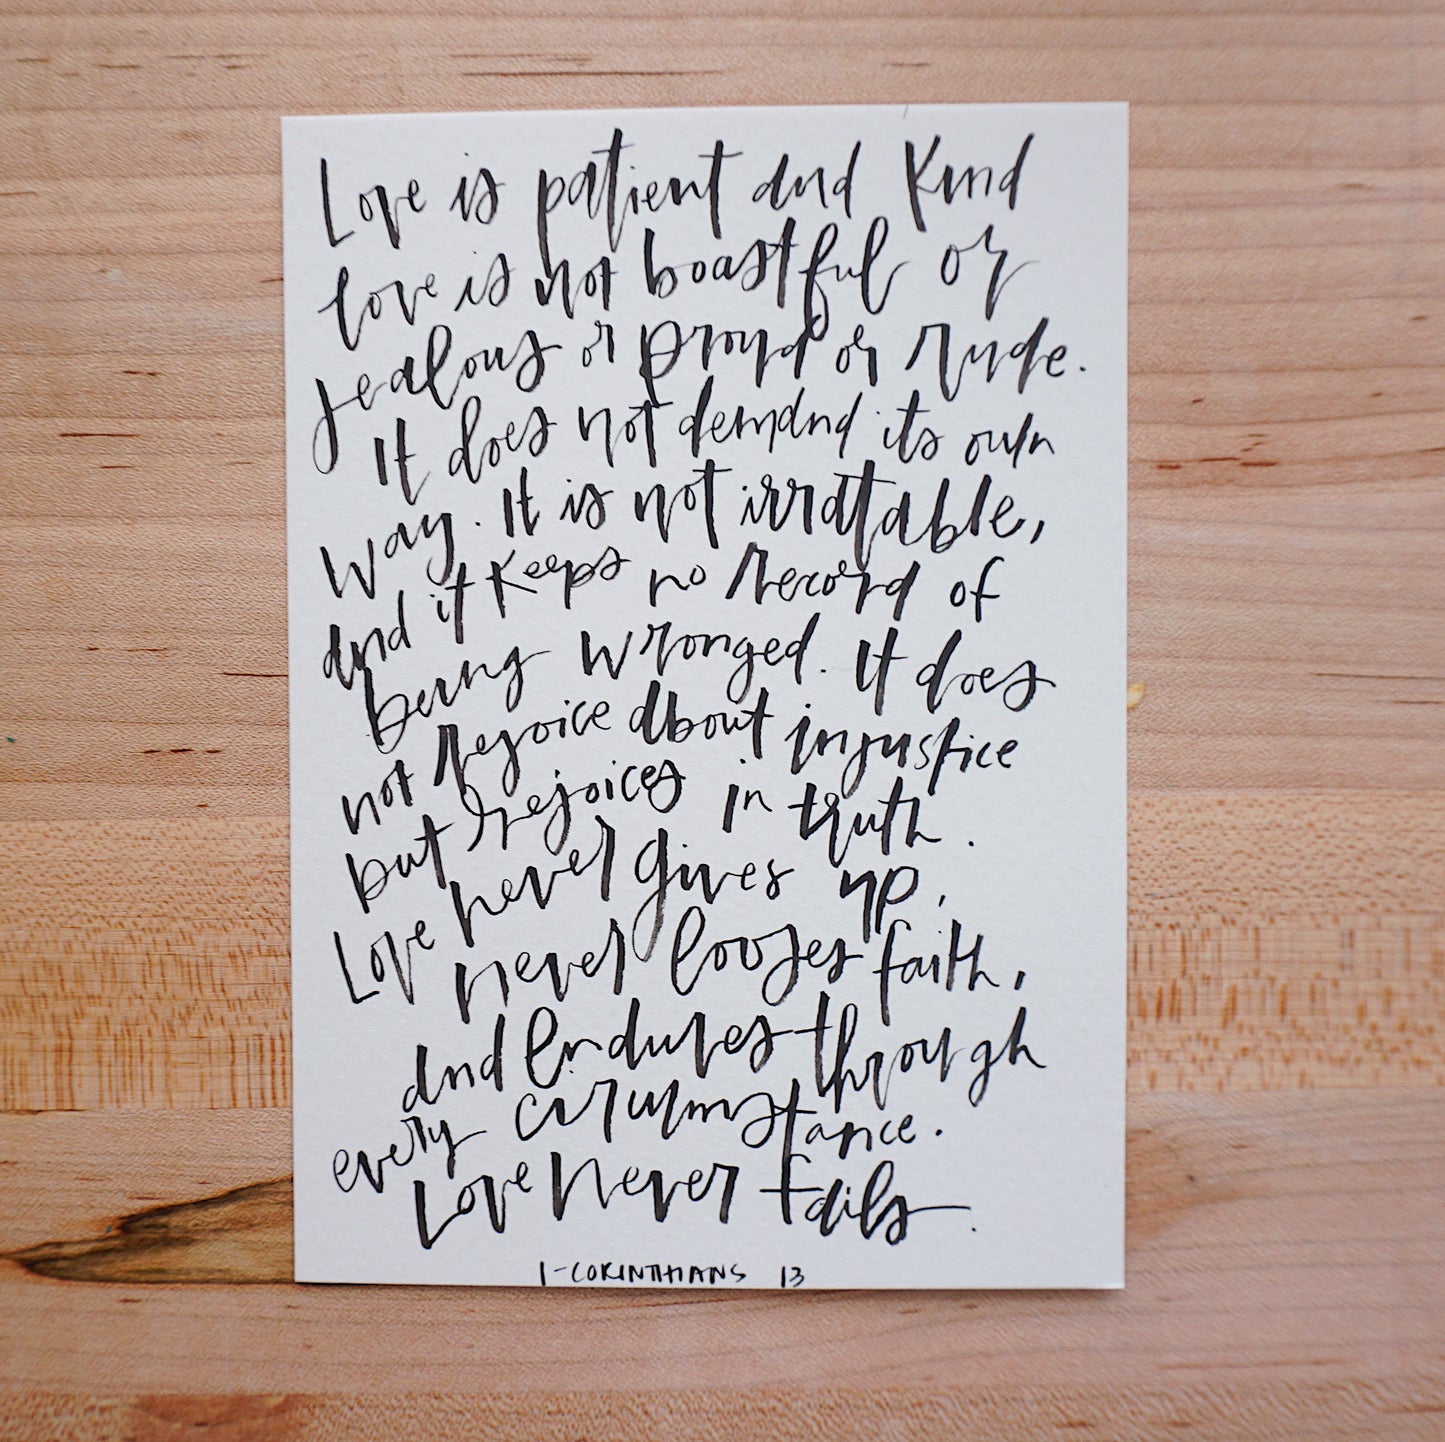 Love is patient and kind
love is not boastful or
jealous or proud or rude.
It does not demand its own
way. It is not irratable,
and it keeps no record of
being wronged. It does
not rejoice about injustice
but rejoices in truth.
Love never gives up,
never looses faith,
and endures through
every circumstance.
Love never fails.
1-CORINTHIANS 13